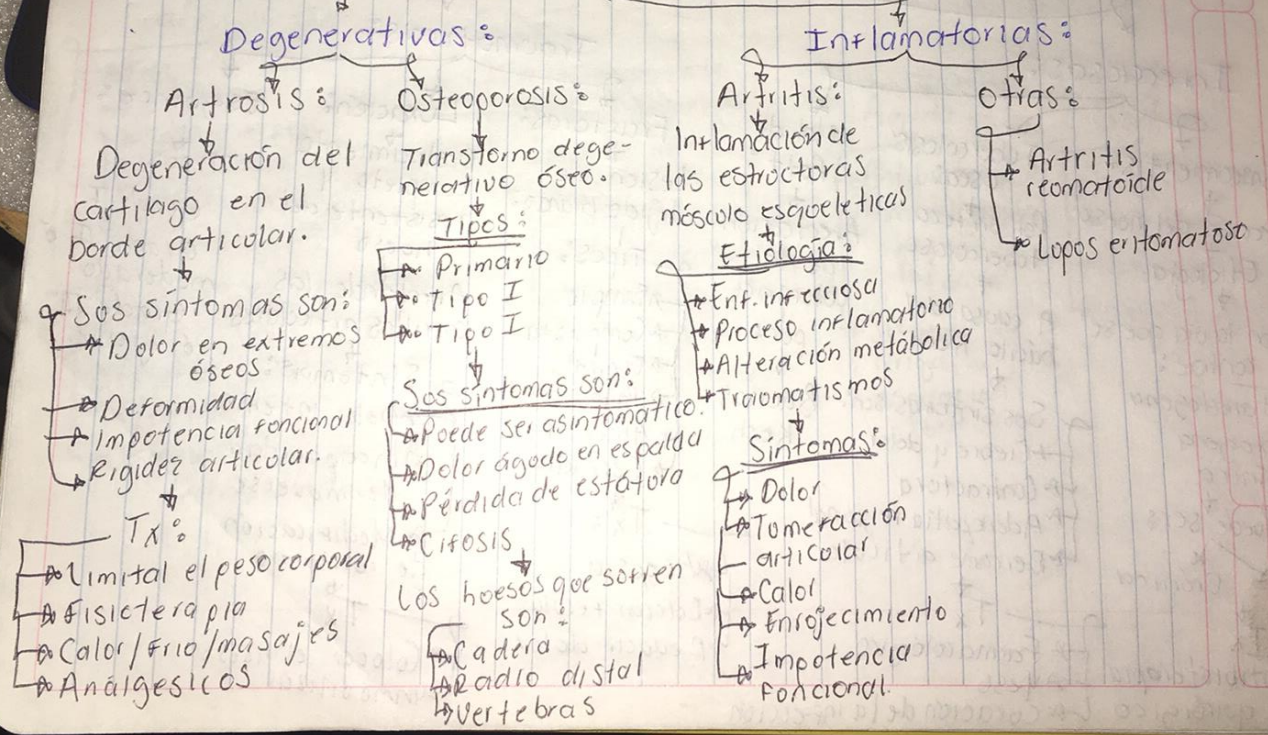 Degenerativas:
Artrosis:
Degeneración del
cartilago en el
borde articular.
Sos síntomas son:
Dolor en extremos
óseos
Deformidad
Impotencia foncional
Rigidez articular.
Tx:
Limital el peso corporal
Fisicterapia
Calor/Frio/masajes
Análgesicos
Osteoporosis:
Transtorno dege-
nerativo óseo.
Tipos:
Primario
Tipo I
Tipo I
Sos síntomas son:
Poede ser asintomático.
Dolor ágodo en espalda
Pérdida de estátora
Cifosis
Los hoesos que sofren
son:
Cadera
Radio distal
Vertebras
Inflamatorias:
Artritis:
Inflamación de
las estroctoras
móscolo esqoeleticas
Etiología:
Enf. infecciosa
Proceso inflamatorio
Alteración metábolica
Traomatismos
Síntomas:
Dolor
Tomefacción
articolar
Calor
Enrojecimiento
Impotencia
foncional.
Otras:
Artritis
reomatoide
Lopos eritomatoso